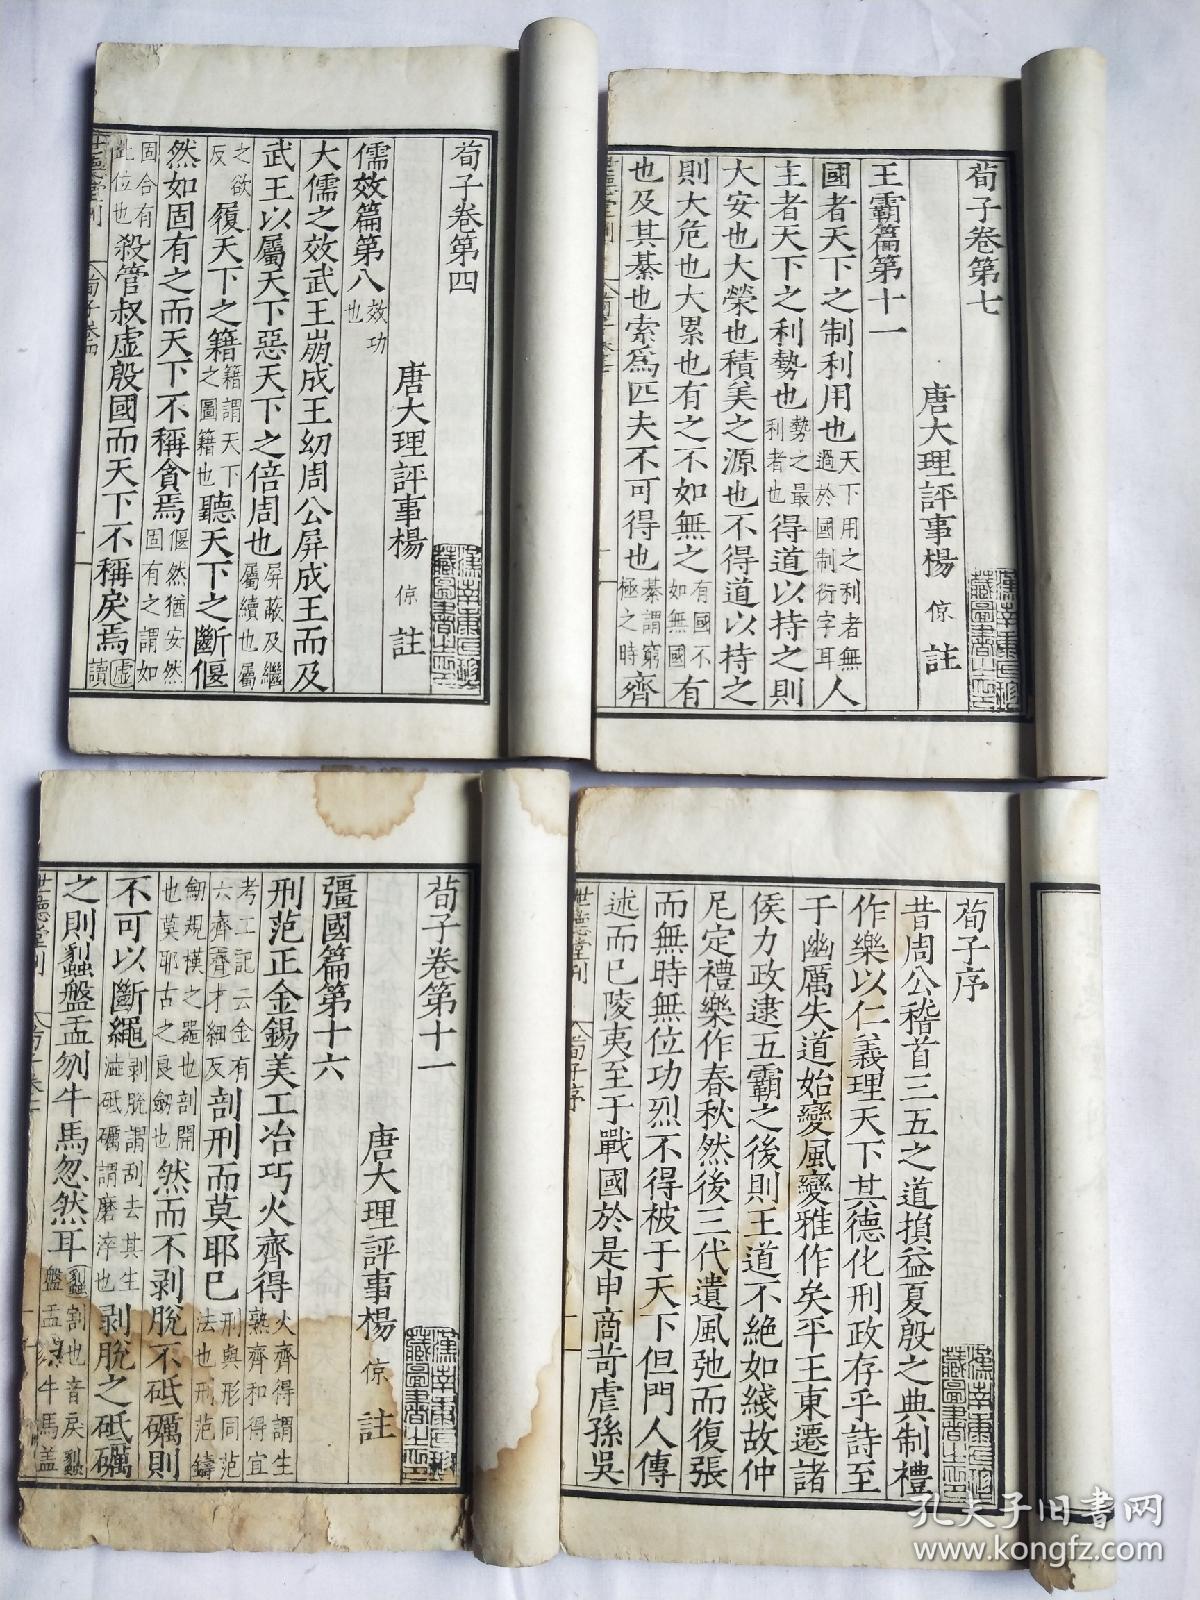 荀子卷第四
唐大理評事楊 倞 註
儒效篇第八 效功也
大儒之效武王崩成王幼周公屏成王而及
武王以屬天下惡天下之倍周也 屏蔽及繼屬續也屬
之欲反 履天下之籍 籍謂天下之圖籍也 聽天下之斷偃
然如固有之而天下不稱貪焉 偃然猶安然固有之謂如
固合有此位也 殺管叔虛殷國而天下不稱戾焉 虛讀
世德堂刊 荀子卷四 一
荀子卷第七
唐大理評事楊 倞 註
王霸篇第十一
國者天下之制利用也 天下用之利者無過於國制衍字耳 人
主者天下之利勢也 勢之最利者也 得道以持之則
大安也大榮也積美之源也不得道以持之
則大危也大累也有之不如無之 有國不如無國 有
也及其綦也索為匹夫不可得也 綦謂窮極之時 齊
荀子卷第十一
唐大理評事楊 倞 註
彊國篇第十六
刑范正金錫美工冶巧火齊得 火齊得謂生熟齊和得宜
考工記云金有六齊齊才細反 剖刑而莫耶已 刑與形同范法也刑范鑄
劒規模之器也剖開也莫耶古之良劒也 然而不剥脫不砥礪則
不可以斷繩 剥脫謂刮去其生澁砥礪謂磨淬也 剥脫之砥礪
之則劙盤盂刎牛馬忽然耳 劙割也音戾劙盤盂刎牛馬盖
世德堂刊
荀子序
昔周公稽首三五之道損益夏殷之典制禮
作樂以仁義理天下其德化刑政存乎詩至
于幽厲失道始變風變雅作矣平王東遷諸
侯力政逮五霸之後則王道不絶如綫故仲
尼定禮樂作春秋然後三代遺風弛而復張
而無時無位功烈不得被于天下但門人傳
述而已陵夷至于戰國於是申商苛虐孫吳
世德堂刊 荀子序 一
孔夫子旧书网
www.kongfz.com